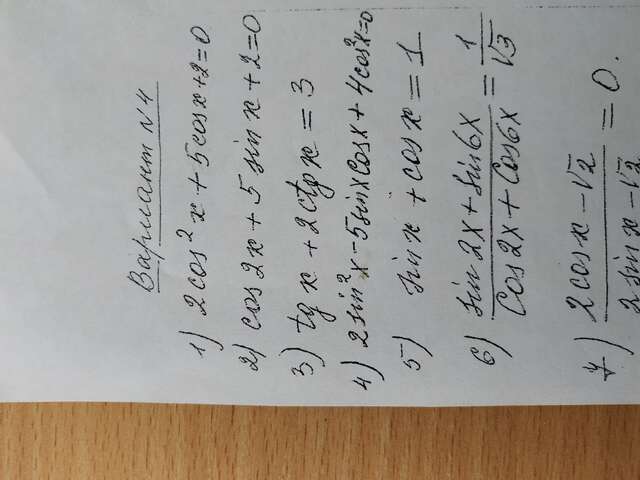 Вариант N 4
1) 2cos²x + 5cosx + 2 = 0
2) cos2x + 5sinx + 2 = 0
3) tgx + 2ctgx = 3
4) 2sin²x - 5sinxcosx + 4cos²x = 0
5) sinx + cosx = 1
6) (sin2x + sin6x)/(Cos2x + Cos6x) = 1/√3
7) (2cosx - √2)/(2sinx - √2) = 0.